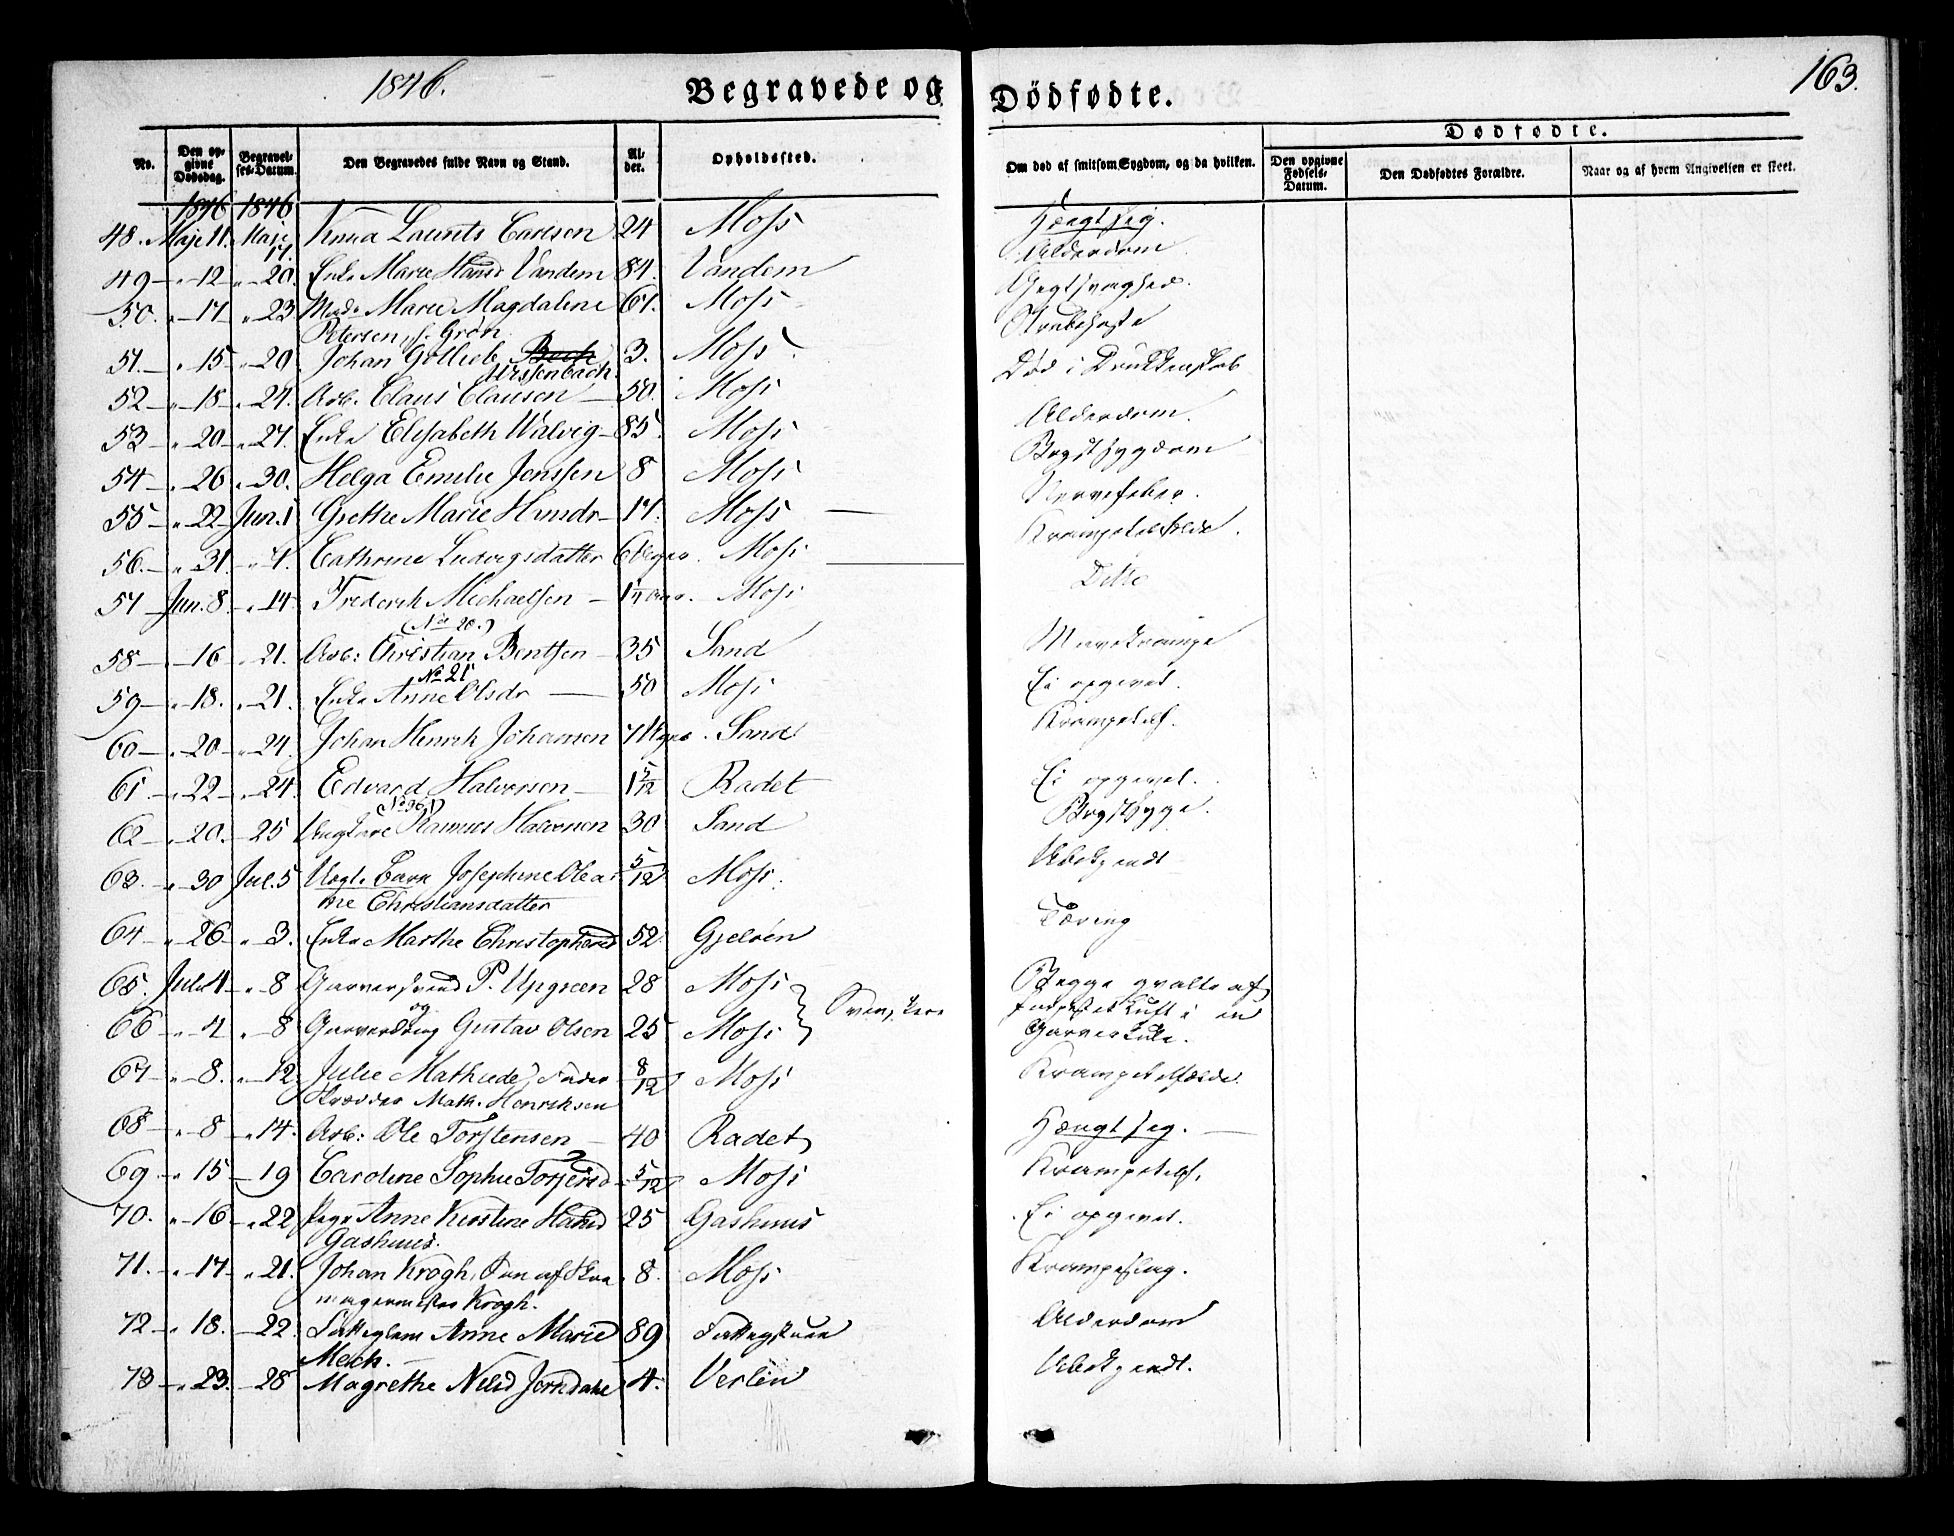 1846.
Begravede og
Dödfødte.
163.
No.
Den opgivne Dødsdag.
Begravelses-Datum.
Den Begravedes fulde Navn og Stand.
Alder.
Opholdssted.
Om død af smitsom Sygdom, og da hvilken.
Dødfødte.
Den opgivne Fødsels-Datum.
Den Dødfødtes Forældre.
Naar og af hvem Angivelsen er skeet.
1846 1846
48. Maje 11. Maje 17. Laurits Carlsen 24 Moss Hængt sig.
49 — " — 12 — " — 20. Enke Marie Hansd Vandem 84. Vandem Alderdom
50. " — 17 — " — 23 Mad. Marie Magdalene 67. Moss Gigtsvaghed.
Petersen, f. Grøn.
51. — " — 15 — " — 20 Johan Gotlieb Bech 3. Moss Strubehoste
Wissenbach.
52 — " — 18 — " — 24. Arb. Claus Clausen — 50. Moss Död i Drukkenskab
53 — " — 20 — " — 27. Enke Elisabeth Walvig — 85. Moss Alderdom.
54 — " — 26 — " — 30. Helga Emilie Jenssen 8 Moss Brystsygdom
55 — " — 22 — Jun. 1 Grethe Marie Hansdr — 17. Moss Nervefeber.
56. — " — 31. — " — 7. Cathrine Ludvigsdatter 6 Uger. Moss Krampetilfælde.
57 — Jun. 8. — " — 14 Frederik Michaelsen — Moss Ditto
(No 20.)
58 — " — 16 — " — 21. Arb: Christian Bentsen — 35 Sand Mavekrampe
No 21
59 — " — 18. " — 21. Enke Anne Olsdr — 50 Moss Ei opgivet.
60 — " — 20 — " — 24. Johan Henrik Johansen 7 Uger. Sand Krampetilf.
61. — " — 22 — " — 24. Edvard Halvorsen — 1 5/12 Radet Ei opgivet.
62 — " — 20. — 25 Ungkarl Rasmus Halvorsen 30 Sand Brystsyge.
63. — " — 30 Jul. 5 Uægt. Barn Josephine Olea- 5/12 Moss. Ubekjendt
ne Christiansdatter
64 — " — 26 — " — 3. Enke Marthe Christophersd 52. Gjelöen Tæring
65. Jul. 4 — " — 8 Garversvend P. Upgreen 28 Moss Begge qvalte af
og Svenskere
66 — " — 4 " — 8 Garverdreng Gustav Olsen 25 Moss Luft i en
Garverkule.
67 — " — 8. " — 12 Julie Mathilde, 8/12 Moss Krampetilfælde.
Skræder Math. Henriksen
68 — " — 8 " — 14. Arb: Ole Torstensen — 40 Radet Hængt sig. —
69 — " — 15 — 19 Caroline Sophie 5/12 Moss Krampetilf.
70. " — 16 — " 22 Pige Anne Kirstine Hansd 25 Gashuus Ei opgivet.
Gashuus.
71. — " — 17 — " — 21. Johan Krogh, Søn af Sko 8. Moss Krampeslag.
magermester Krogh.
72 — " — 18. — 22. Fattiglem Anne Marie 89 Fattigstuen Alderdom
Mech.
73 — " — 23. — 28 Magrethe Nilsd 4. Verlen Ubekjendt.